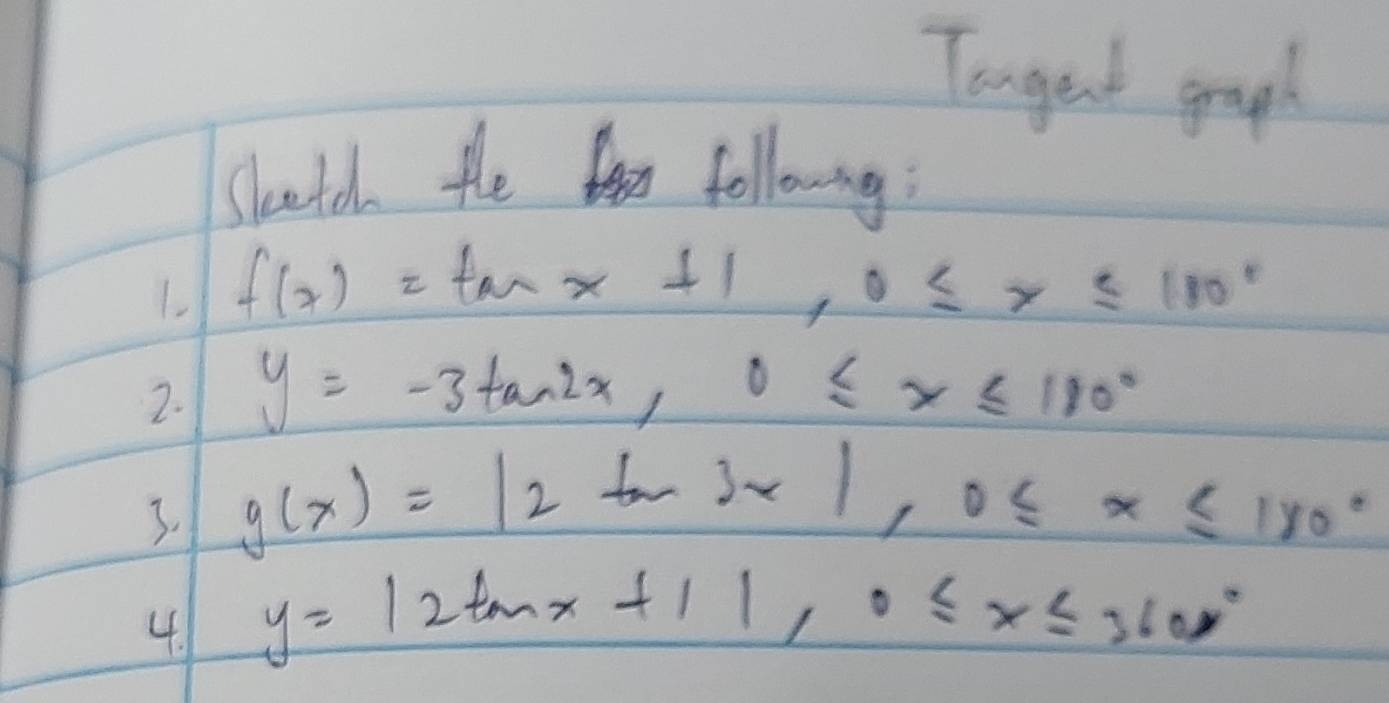 Tangent graph
Sketch the following:
1. f(x) = tan x + 1 , 0 ≤ x ≤ 180°
2. y = -3tan2x, 0 ≤ x ≤ 180°
3. g(x) = |2 tan 3x|, 0 ≤ x ≤ 180°
4. y = |2tanx + 1|, 0 ≤ x ≤ 360°